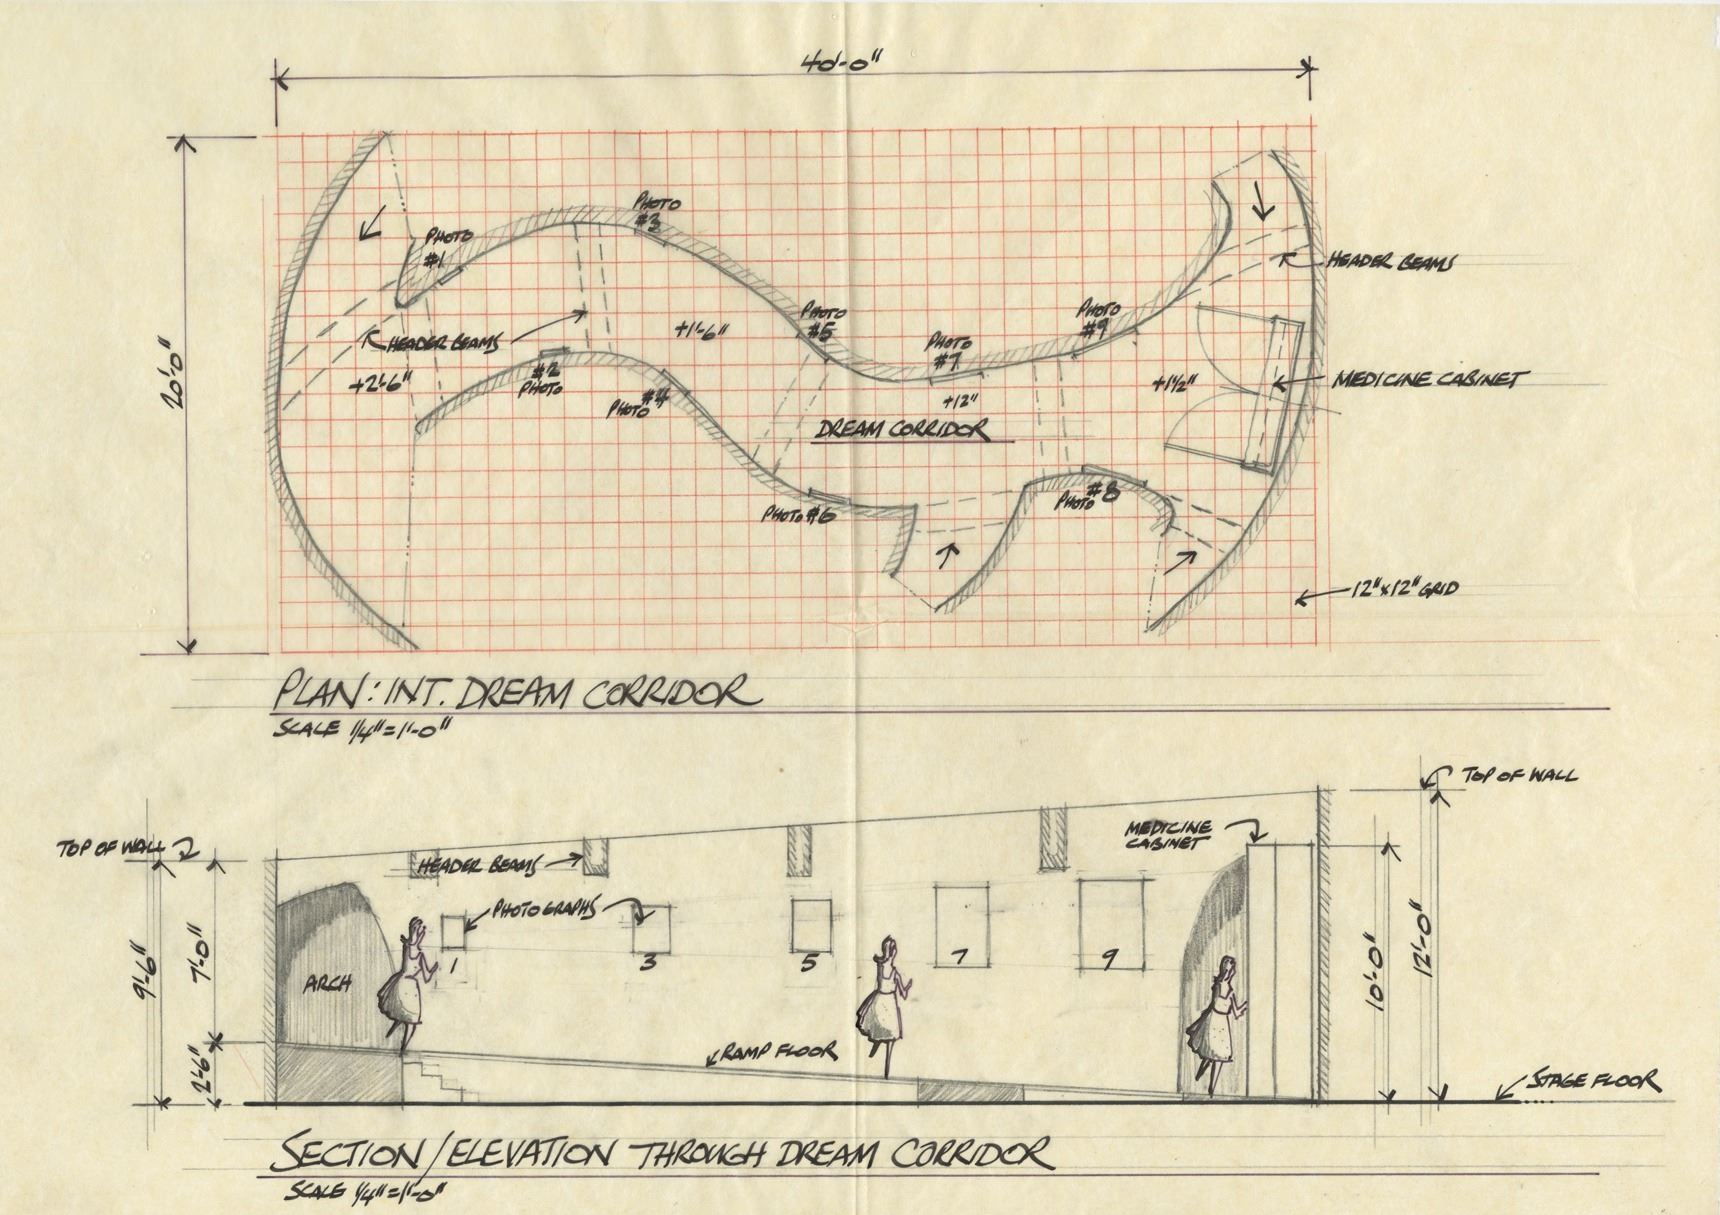 40'-0"
20'-0"
PHOTO
#1
PHOTO
#3
HEADER BEAMS
+2'-6"
#2
PHOTO
+1'-6"
PHOTO
#4
PHOTO
#5
PHOTO #6
PHOTO
#7
+12"
DREAM CORRIDOR
PHOTO
#9
#8
PHOTO
+1½"
HEADER BEAMS
MEDICINE CABINET
12"x12" GRID
PLAN: INT. DREAM CORRIDOR
SCALE 1/4"=1'-0"
TOP OF WALL
9'-6"
7'-0"
2'-6"
ARCH
HEADER BEAMS
PHOTOGRAPHS
1
3
5
7
9
RAMP FLOOR
MEDICINE
CABINET
TOP OF WALL
10'-0"
12'-0"
STAGE FLOOR
SECTION/ELEVATION THROUGH DREAM CORRIDOR
SCALE 1/4"=1'-0"